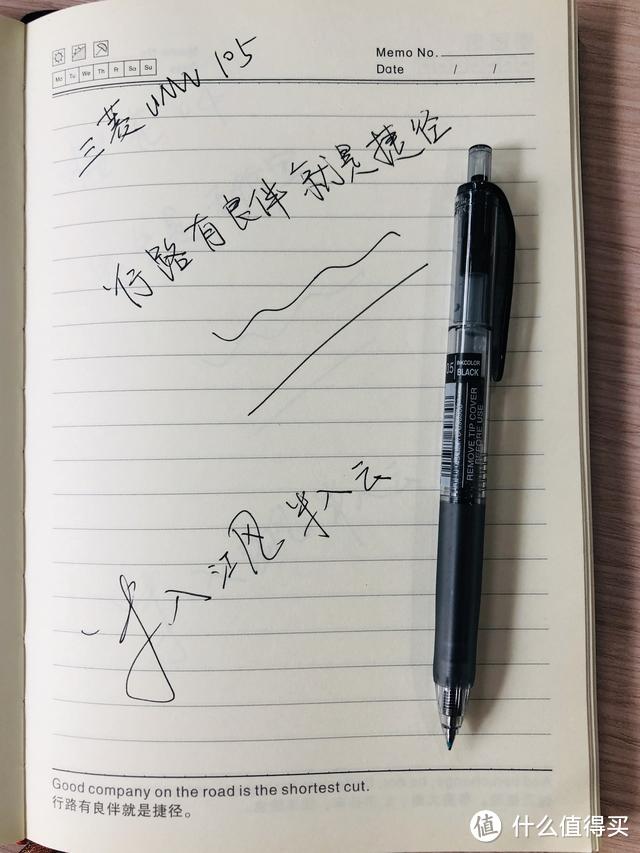 Memo No.
Date / /
Mo Tu We Th Fr Sa Su
三菱 UMN 105
行路有良伴就是捷径
INKCOLOR
BLACK
REMOVE TIP COVER
BEFORE USE
入江风半入云
Good company on the road is the shortest cut.
行路有良伴就是捷径。
值 什么值得买